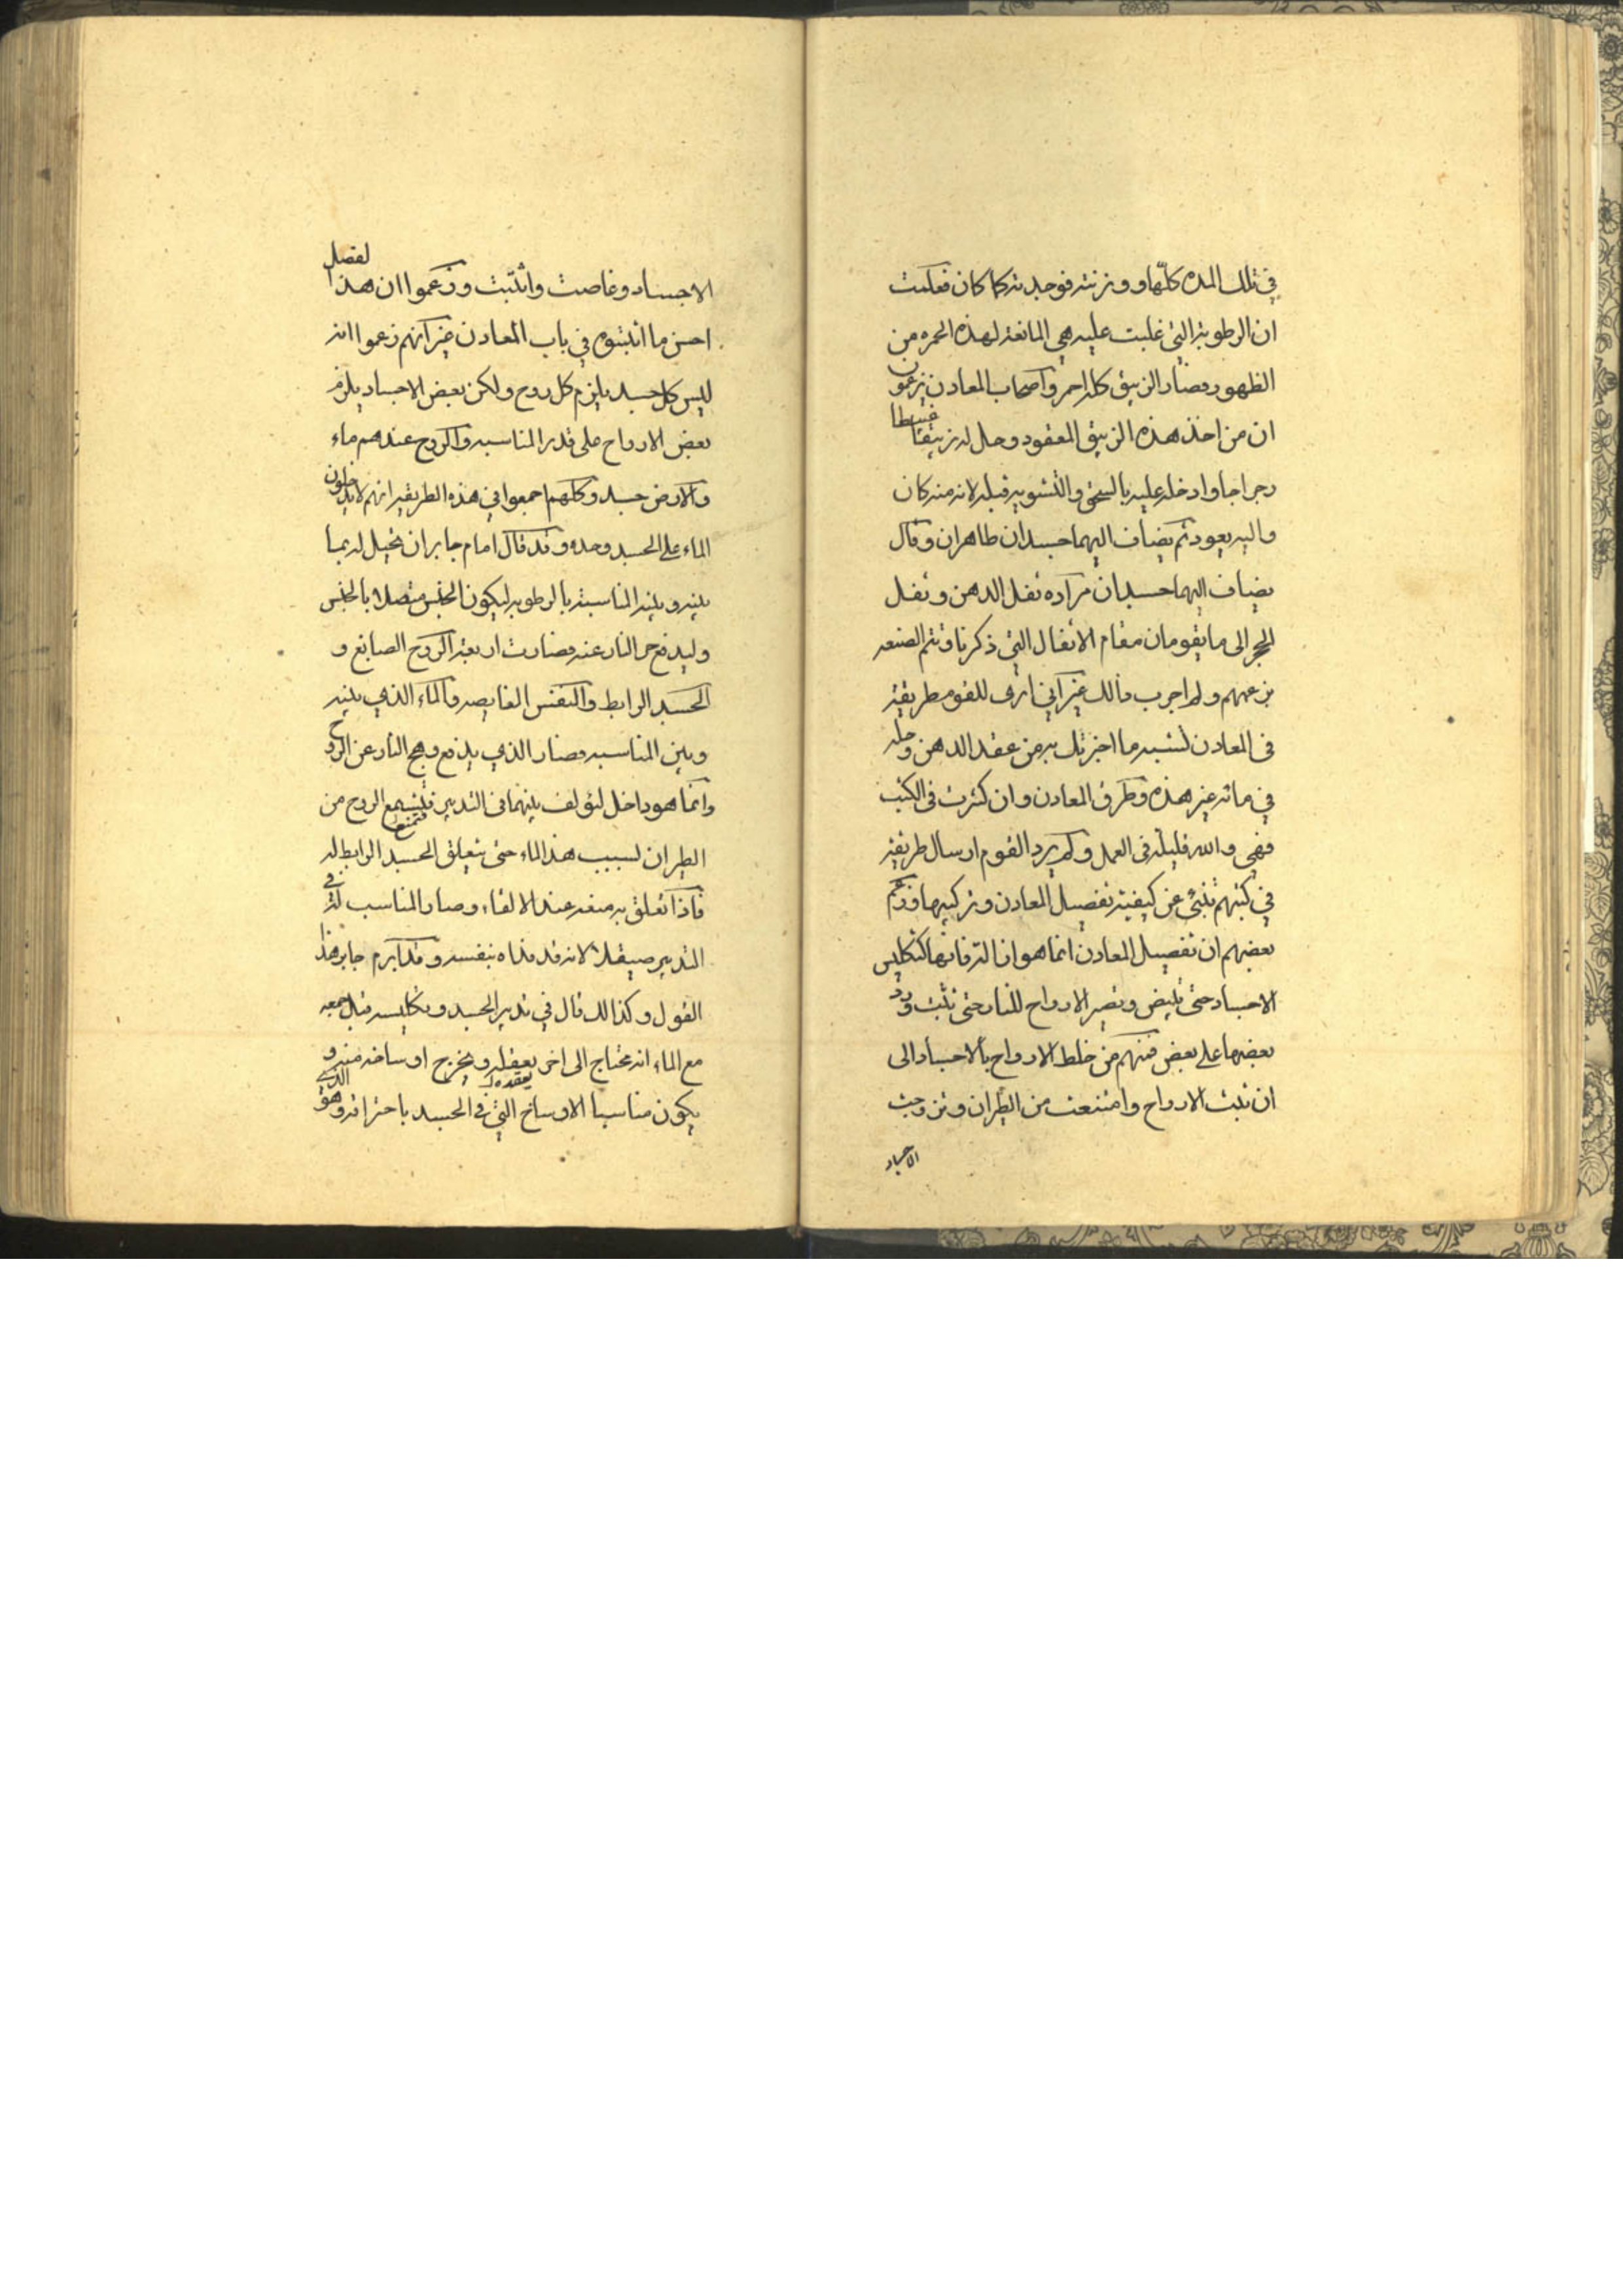 في تلك المده كلّها ووزنته فوجدته كما كان فعلمت
ان الرطوبة التي غلبت عليه هي المانعة لهذه الحمره من
الظهور فصار الزيبق كله احمر واصحاب المعادن يزعمون
ان من اخذ هذه الزيبق المعقود وحل له زيبقا غبيطا
رجراجا وادخله عليه بالسحق والتشويه قبله لانه منه كان
واليه يعود ثم يضاف اليهما جسدان طاهران وقال
يضاف اليهما جسدان مراده ثفل الدهن وثفل
الحجر الى ما يقومان مقام الاثفال التي ذكرنا وتتم الصنعه
بزعمهم ولم اجرب ذالك غير اني ارى للقوم طريقة
في المعادن تشبه ما اخبرتك به من عقد الدهن وحله
في مائه غير هذه وطرق المعادن وان كثرت في الكتب
فهي والله قليلة في العمل ولم يرد القوم ارسال طريقة
في كتبهم تنبئ عن كيفية تفصيل المعادن وتركيبها وزعم
بعضهم ان تفصيل المعادن انما هو ان
الاجساد حتى تبيض وتصير الارواح للنار حتى تثبت ورد
بعضها على بعض فمنهم من خلط الارواح بالاجساد الى
ان تثبت الارواح وامتنعت من الطيران وتزوجت
الاجساد
الاجساد وغاصت واثبتت وزعموا ان هذا لفصل
احسن ما اثبتوه في باب المعادن غير انهم زعموا انه
ليس كل جسد يلزم كل روح ولكن بعض الاجساد يلزم
بعض الارواح على قدر المناسبه والروح عندهم ماء
والارض جسد وكلهم اجمعوا في هذه الطريقه انهم لا يدخلون
الماء على الجسد وحده وقد قال امام جابر ان يحيل له بما
بينه وبينه المناسبة بالرطوبه ليكون الجنس متصلا بالجنس
وليدفع حر النار عنه فصارت اربعة الروح الصابغ و
الجسد الرابط والنفس الغايصه والماء الذي بينه
وبين المناسبه فصار الذي يدفع وهج النار عن الروح
وانما هو داخل ليؤلف بينهما في التدبير فتمنع الروح من
الطيران لسبب هذا الماء حتى يتعلق الجسد الرابط له
فاذا تعلق به منعه عند الالقاء وصار المناسب له في
التدبير صيقلا لانه قد فداه بنفسه وقد ابرم جابر هذا
القول وكذالك قال في تدبير الجسد وتكليسه قبل جمعه
مع الماء انه محتاج الى اخر يعقده ويخرج اوساخه منه و
يكون مناسبا الاوساخ التي في الجسد باحتراقه وهو الذي